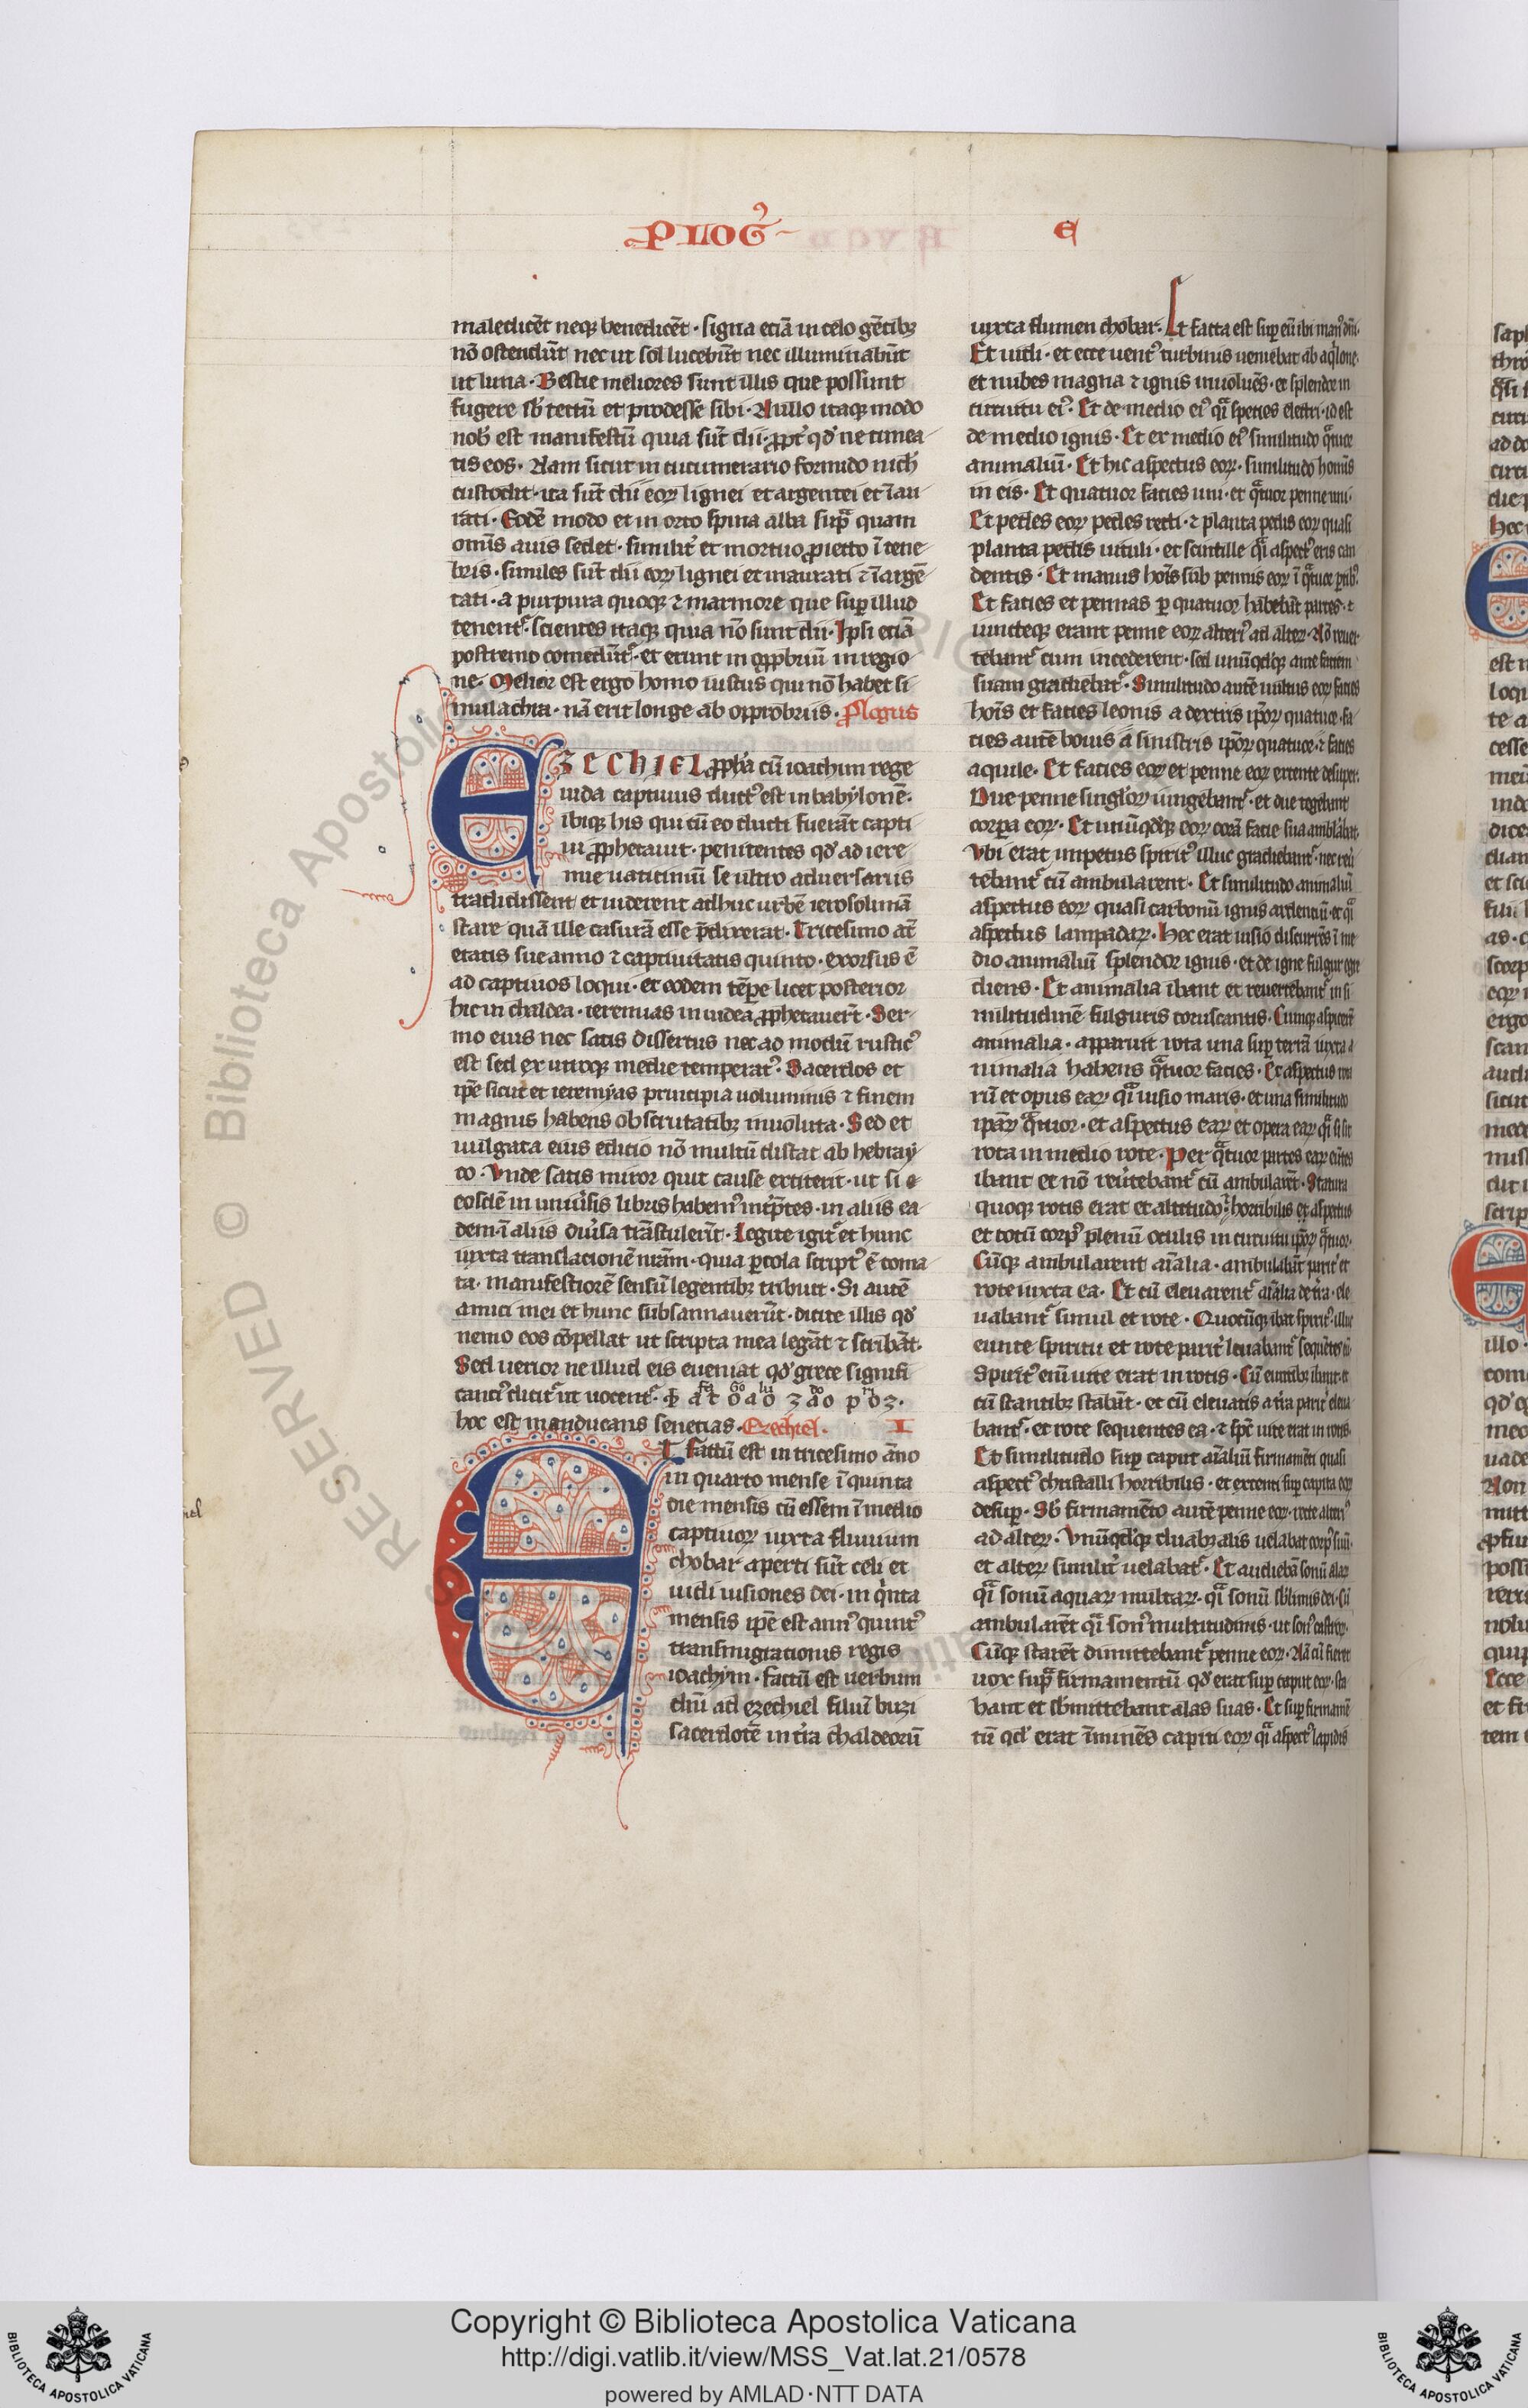 PLOG᾽
E
maledicēt neqꝫ benedicēt · signa eciā in celo gētibꝫ
nō ostendūt nec ut sol lucebūt nec illuminabūt
ut luna · Bestie meliores sunt illis que possunt
fugere sb̓ tectū et prodesse sibi · Nullo itaqꝫ modo
nob̓ est manifestū quia sūt dii · ꝓpt̓ qd̓ ne timea
tis eos · Nam sicut in cucumerario formido nich̓
custodit · ita sūt dii eoꝝ lignei et argentei et īau
rati · Eodē modo et in orto spina alba supᷓ quam
om̄is auis sedet · similit̓ et mortuo ꝓiecto ī tene
bris · similes sūt dii eoꝝ lignei et inaurati ⁊ īargē
tati · a purpura quoqꝫ ⁊ marmore que suꝑ illud
tenentᷣ · scientes itaqꝫ quia nō sunt dii · Ipsi eciā
postremo comedūtᷣ · et erunt in opp̱briū in regio
ne · Melior est ergo homo iustus qui nō habet si
mulachra · nā erit longe ab opprobriis · Plogus
EZECHIEL ꝓph̓a cū ioachim rege
iuda captiuus duct᾽ est in babylonē ·
ibiqꝫ his qui cū eo ducti fuerāt capti
ui ꝓphetauit · penitentes qd̓ ad iere
mie uaticiniū se ultro aduersariis
tradidissent et uiderent adhuc urbē ierosolimā
stare quā ille casurā esse p̄dixerat · Tricesimo at̄
etatis sue anno ⁊ captiuitatis quinto · exorsus ē
ad captiuos loqui · et eodem tēpe licet posterior
hic in chaldea · ieremias in iudea ꝓphetauer̄t · Ser
mo eius nec satis dissertus nec ad modū rustic᾽
est sed ex utroqꝫ medie temperat᾽ · Sacerdos et
ip̄e sicut et ieremyas principia uoluminis ⁊ finem
magnis habens obscuritatibꝫ inuoluta · Sed et
uulgata eius editio nō multū distat ab hebray
co · Vnde satis miror quit cause extiterit · ut si e
eosdē in uniu̓sis libris habem᾽ int̓p̄tes · in aliis ea
dem · ī aliis diu̓sa trāstuler̄t · Legite igitᷣ et hunc
iuxta translacionē nr̄am · quia ꝑ cola script᾽ ē coma
ta · manifestiorē sensū legentibꝫ tribuit · Si autē
amici mei et hunc subsannauerūt · dicite illis qd̓
nemo eos cōpellat ut scripta mea legāt ⁊ scribāt ·
Sed uerior ne illud eis eueniat qd̓ grece signifi
hoc est manducans senecias · Ezechiel · I
ET factū est in tricesimo āno
in quarto mense ī quinta
die mensis cū essem ī medio
captiuoꝝ iuxta fluuium
chobar aperti sūt celi et
uidi uisiones dei · in qͥnta
mensis ip̄e est ann᾽ quint᾽
transmigracionis regis
ioachym · factū est uerbum
dn̄i ad ezechiel filiū buzi
sacerdotē in tr̄a chaldeorū
iuxta flumen chobar · Et facta est suꝑ eū ibi man᾽ dn̄i ·
Et uidi · et ecce uent᾽ turbinis ueniebat ab aqͥlone ·
et nubes magna ⁊ ignis inuoluēs · et splendor in
circuitu ei᾽ · Et de medio ei᾽ qᷓi species electri · id est
de medio ignis · Et ex medio ei᾽ similitudo qᷓtuor
animaliū · Et hic aspectus eoꝝ · similitudo homīs
in eis · Et quatuor facies uni · et qᷓtuor penne uni ·
Et pedes eoꝝ pedes recti · ⁊ planta pedis eoꝝ quasi
planta pedis uituli · et scintille qᷓi aspect᾽ eris can
dentis · Et manus hoīs sub pennis eoꝝ ī qᷓtuor ꝑtib᾽
Et facies et pennas ꝑ quatuor habebāt partes · ⁊
iuncteqꝫ erant penne eoꝝ alteri᾽ ad alteꝝ · Nō reuer
tebantᷣ cum incederent · sed unūqd̓qꝫ ante faciem
suam gradiebatᷣ · Similitudo autē uultus eoꝝ facies
hoīs et facies leonis a dextris ip̄oꝝ quatuor · fa
cies autē bouis a sinistris ip̄oꝝ quatuor · ⁊ facies
aquile · Et facies eoꝝ et penne eoꝝ extente desuper ·
Due penne singl̓oꝝ iungebantᷣ · et due tegebant
corpora eoꝝ · Et unūqd̓qꝫ eoꝝ corā facie sua amblabat ·
Vbi erat impetus spirit᾽ illuc gradiebantᷣ · nec reu̓
tebantᷣ cū ambularent · Et similitudo animaliū
aspectus eoꝝ quasi carbonū ignis ardenciū · et qᷓi
aspectus lampadaꝝ · Hec erat uisio discurrēs ī me
dio animaliū splendor ignis · et de igne fulgur egre
diens · Et animalia ibant et reuertebantᷣ in si
militudinē fulguris coruscantis · Cumqꝫ aspicerē
animalia · apparuit rota una suꝑ terrā iuxta a
nimalia habens qᷓtuor facies · Et aspectus rota
rū et opus eaꝝ qᷓi uisio maris · et una similitudo
ip̄aꝝ qᷓtuor · et aspectus eaꝝ et opera eaꝝ qᷓi si sit
rota in medio rote · Per qᷓtuor partes eaꝝ eūtes
ibant et nō reu̓tebantᷣ cū ambularēt · Statura
quoqꝫ rotis erat et altitudo · ⁊ horribilis et aspectus
et totū corp᾽ plenū oculis in circuitu ip̄oꝝ qᷓtuor ·
Cūqꝫ ambularent aīalia · ambulabāt parit̓ et
rote iuxta ea · Et cū eleuarentᷣ aīalia de tr̄a · ele
uabantᷣ simul et rote · Quocūqꝫ ibat spirit᾽ · illuc
eunte spiritu et rote parit̓ leuabantᷣ sequētes eū
Spirit᾽ eni᷑ uite erat in rotis · Cū euntibꝫ ibant · et
cū stantibꝫ stabāt · et cū eleuatis a tr̄a parit̓ eleua
bantᷣ · et rote sequentes ea · ⁊ sp̄c uite erat in rotis ·
Et similitudo suꝑ caput aīaliū firmamēti quasi
aspect᾽ christalli horribilis · et extenti suꝑ capita eoꝝ
desuꝑ · Sb̓ firmamēto autē penne eoꝝ · recte alteri᾽
ad alteꝝ · Vnūqd̓qꝫ duabꝫ alis uelabat corp᾽ suū ·
et alteꝝ similit̓ uelabatᷣ · Et audiebā sonū alaꝝ
qᷓi sonū aquaꝝ multaꝝ · qᷓi sonū sb̓limis dei · cū
ambularēt qᷓi son᾽ multitudinis · ut son᾽ castroꝝ ·
Cūqꝫ starēt dimittebantᷣ penne eoꝝ · Nā cū fieret
uox supᷓ firmamentū qd̓ erat suꝑ caput eoꝝ · sta
bant et sb̓mittebant alas suas · Et suꝑ firmamē
tū qd̓ erat īminēs capiti eoꝝ qᷓi aspect᾽ lapidis
Copyright © Biblioteca Apostolica Vaticana
http://digi.vatlib.it/view/MSS_Vat.lat.21/0578
powered by AMLAD·NTT DATA
BIBLIOTECA APOSTOLICA VATICANA
BIBLIOTECA APOSTOLICA VATICANA